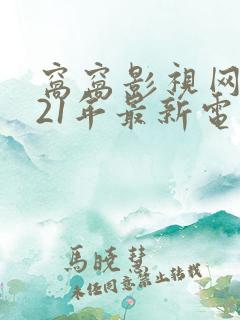 窩窩影視网
21年最新電
馬曉慧
未经同意禁止转载